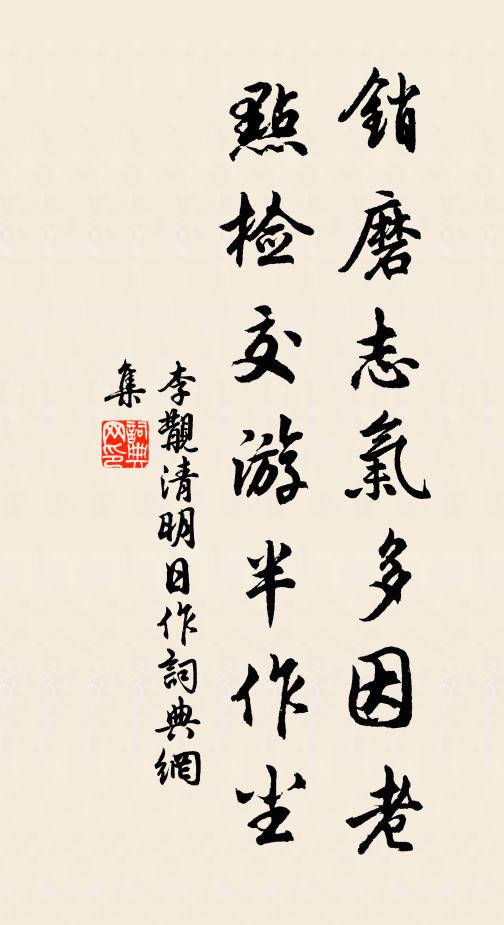 銷磨志氣多因老
點檢交游半作尘
李覯清明日作詞典網
集
詞典
网印